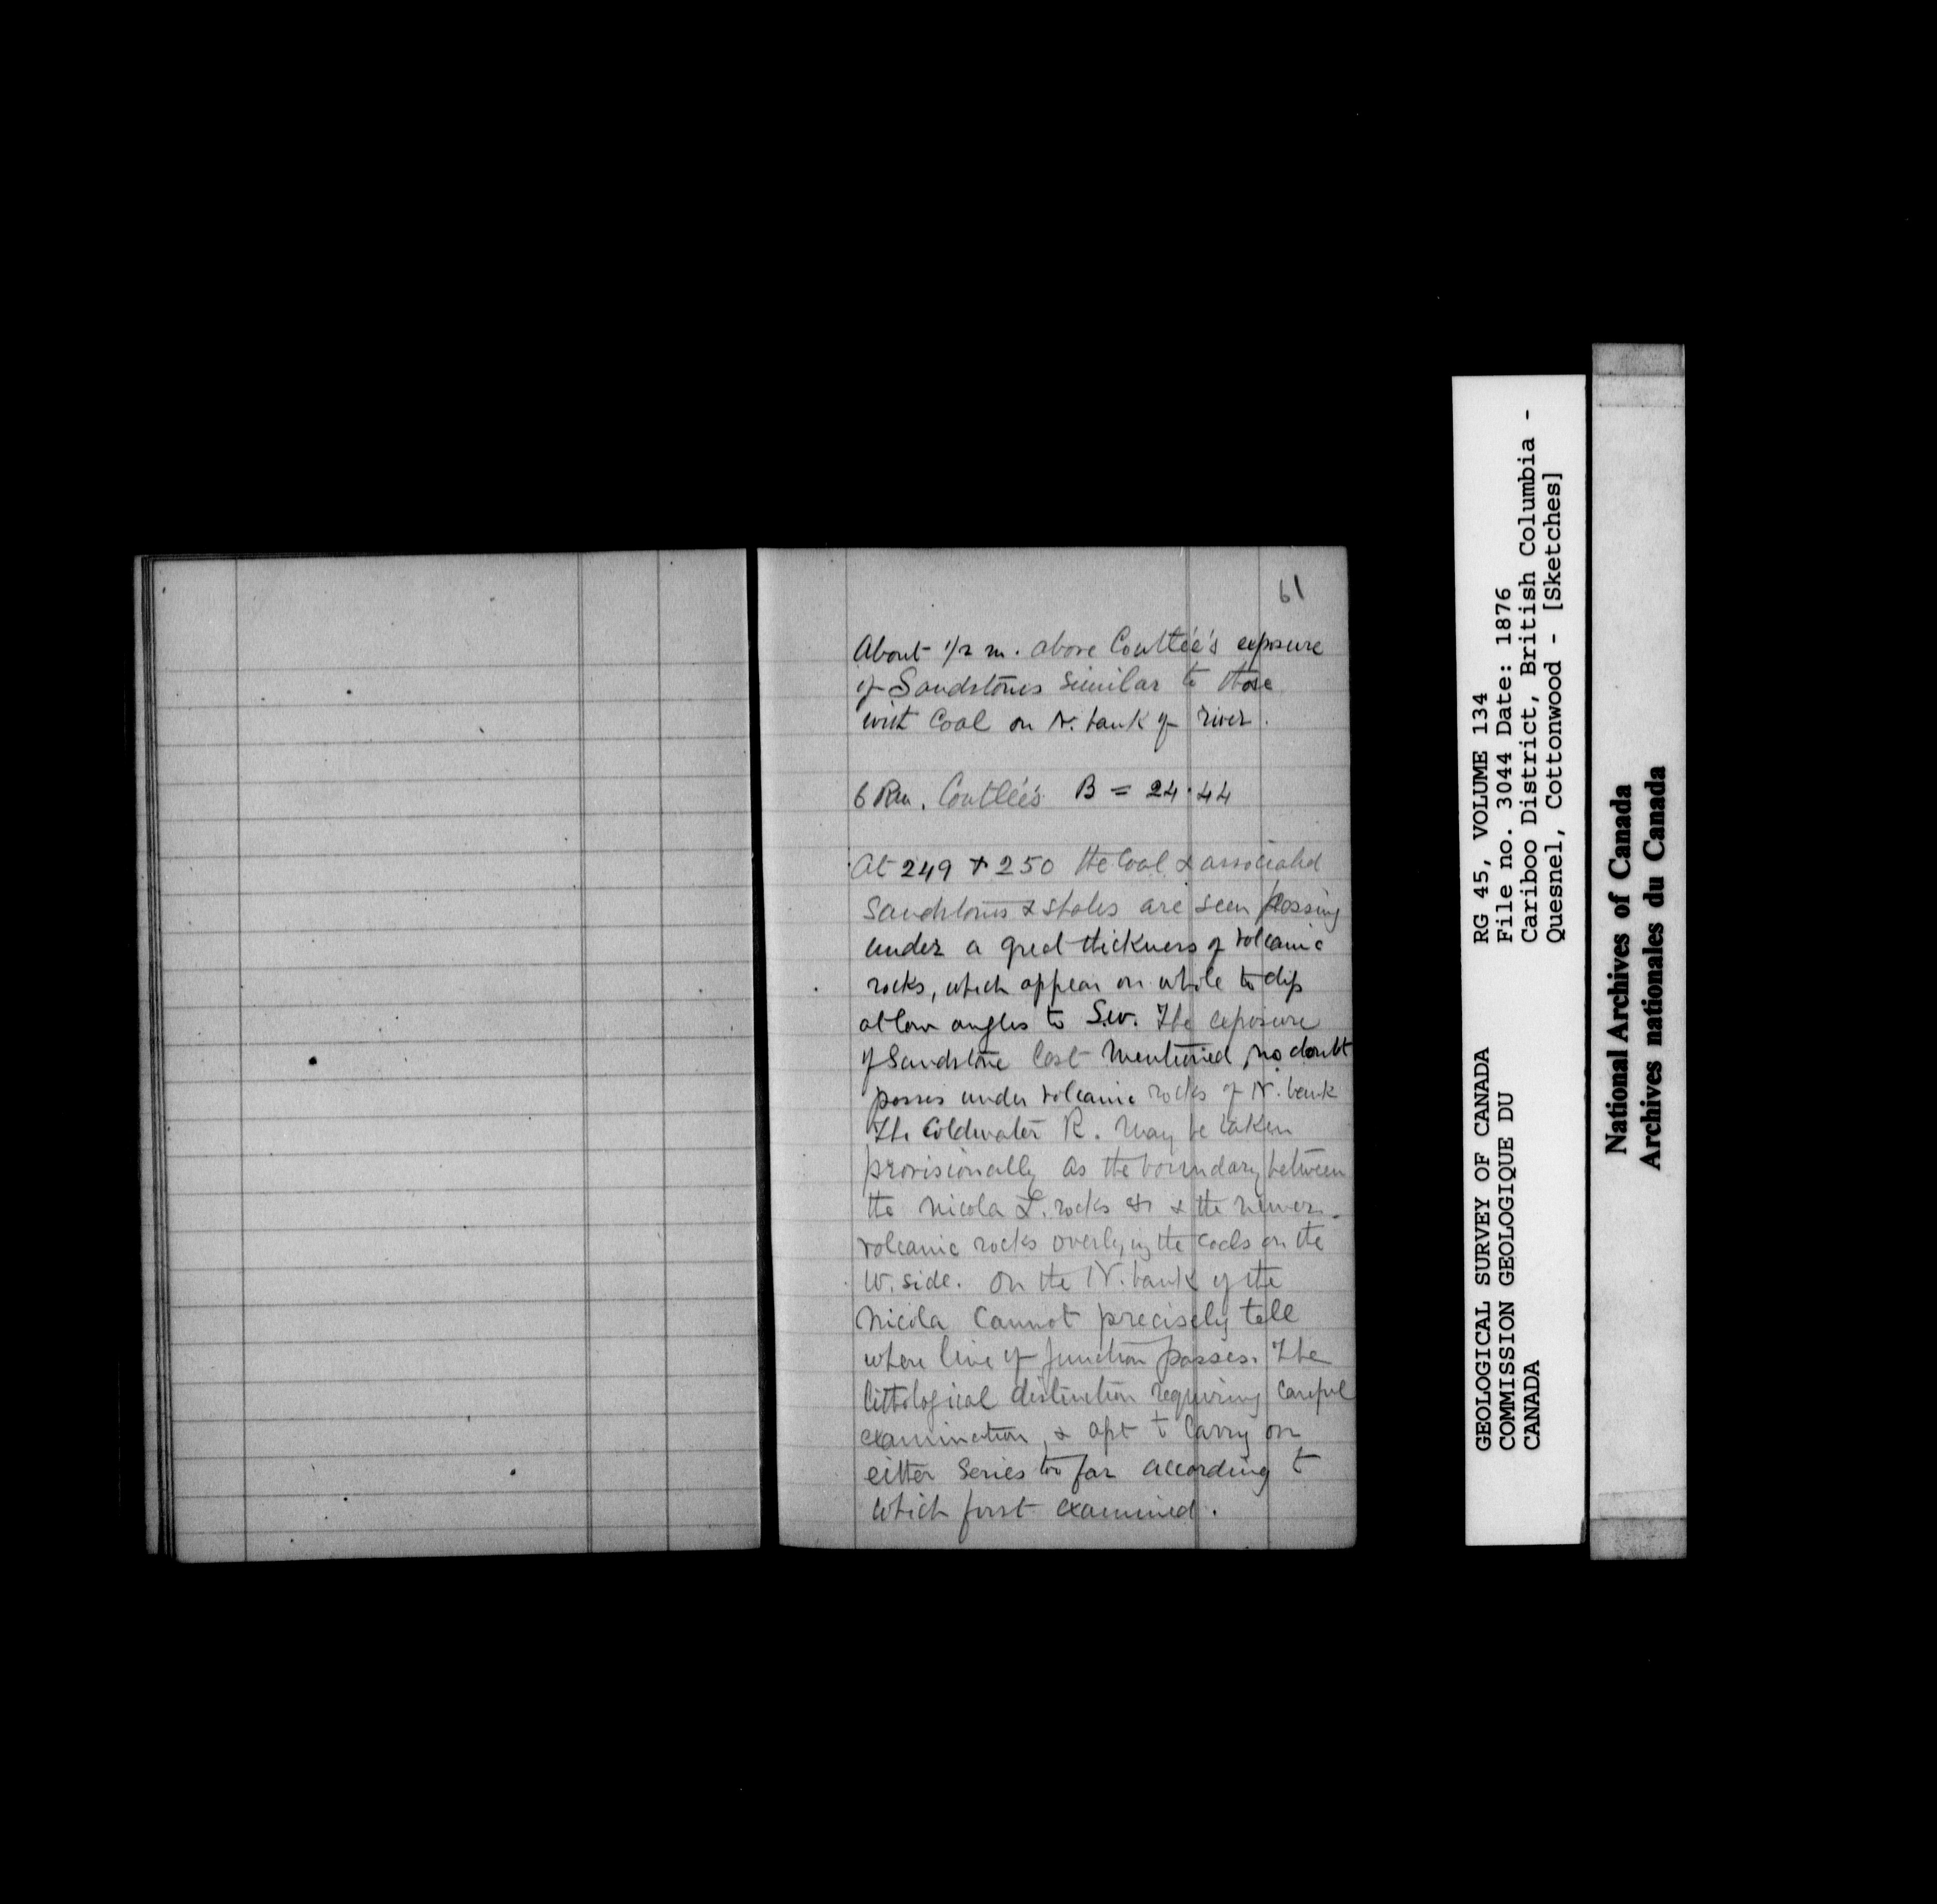 61
About 1/2 m. above Coutlée's exposure
of Sandstones similar to those
with Coal on N. bank of river.
6 P.m. Coutlée's B = 24.44
At 249 & 250 the Coal & associated
Sandstones & shales are seen passing
under a great thickness of volcanic
rocks, which appear on whole to dip
at low angles to S.W. The exposure
of Sandstone last mentioned, no doubt
passes under volcanic rocks of N. bank
The Coldwater R. may be taken
provisionally as the boundary between
the Nicola L. rocks &c & the newer
volcanic rocks overlying the coals on the
W. side. On the N. bank of the
Nicola Cannot precisely tell
where line of junction passes. The
lithological distinction requiring careful
examination, & apt to carry on
either series too far according to
which first examined.
GEOLOGICAL SURVEY OF CANADA
COMMISSION GEOLOGIQUE DU
CANADA
RG 45, VOLUME 134
File no. 3044 Date: 1876
Cariboo District, British Columbia -
Quesnel, Cottonwood - [Sketches]
National Archives of Canada
Archives nationales du Canada